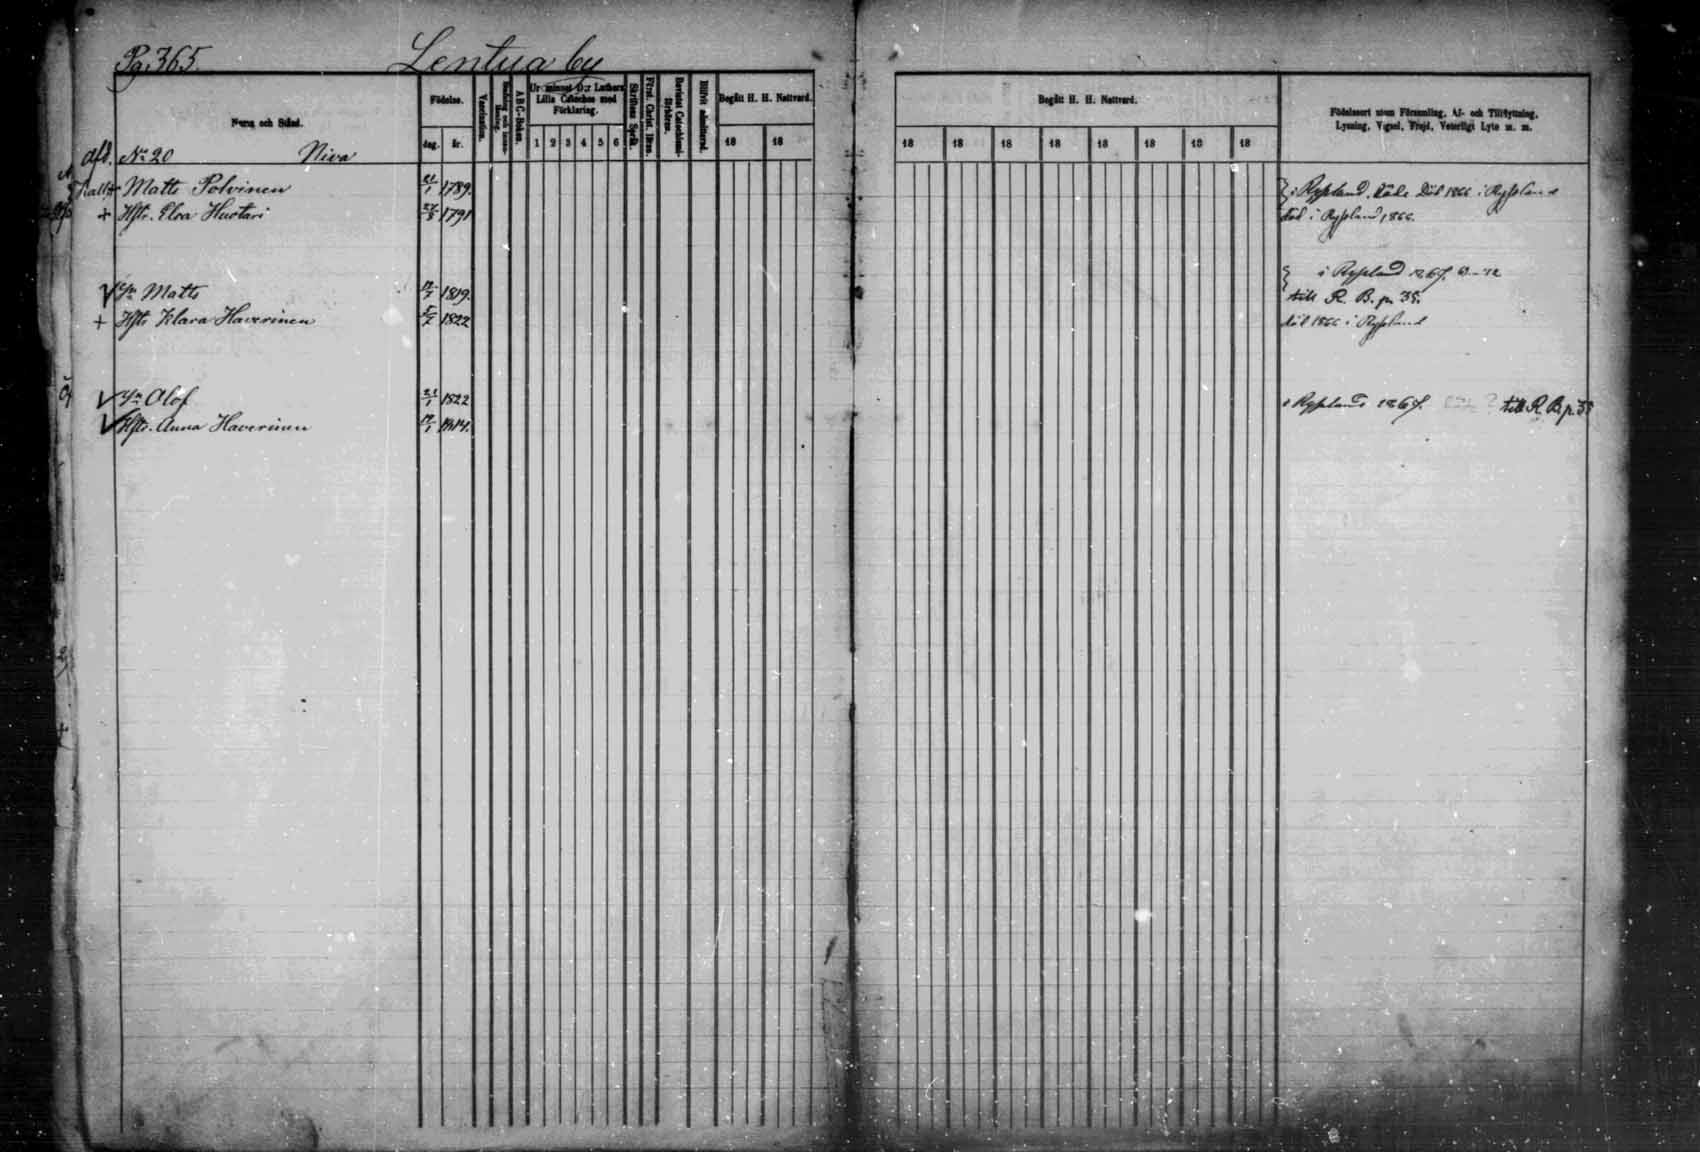 Pg. 365. Lentua by
Namn och Stånd.
Födelse.
dag. år.
Vaccination.
A B C-Boken.
Ur minnet D:r Luthers Lilla Cateches med Förklaring.
1 2 3 4 5 6
Skriftens Språk.
Bevistat Catechismi-förhören.
Blifvit admitterad.
Begått H. H. Nattvard.
18 18
Begått H. H. Nattvard.
18 18 18 18 18 18 18 18
Födelseort utom Församling, Af- och Tillflyttning,
Lysning, Vigsel, Frejd, Veterligt Lyte m. m.
Afd. No 20 Niva
+ Matts Polvinen 1789. i Ryssland. Död 1866 i Ryssland
+ Hstr. Elsa Huotari 1791 död i Ryssland 1866.
i Ryssland 1867.
Sn Matts 1819. till R. B. p. 35.
+ Hstr Klara Haverinen 1822 död 1866 i Ryssland
Sn Olof 1822 i Ryssland 1867. till R. B. p. 35
Hstr. Anna Haverinen